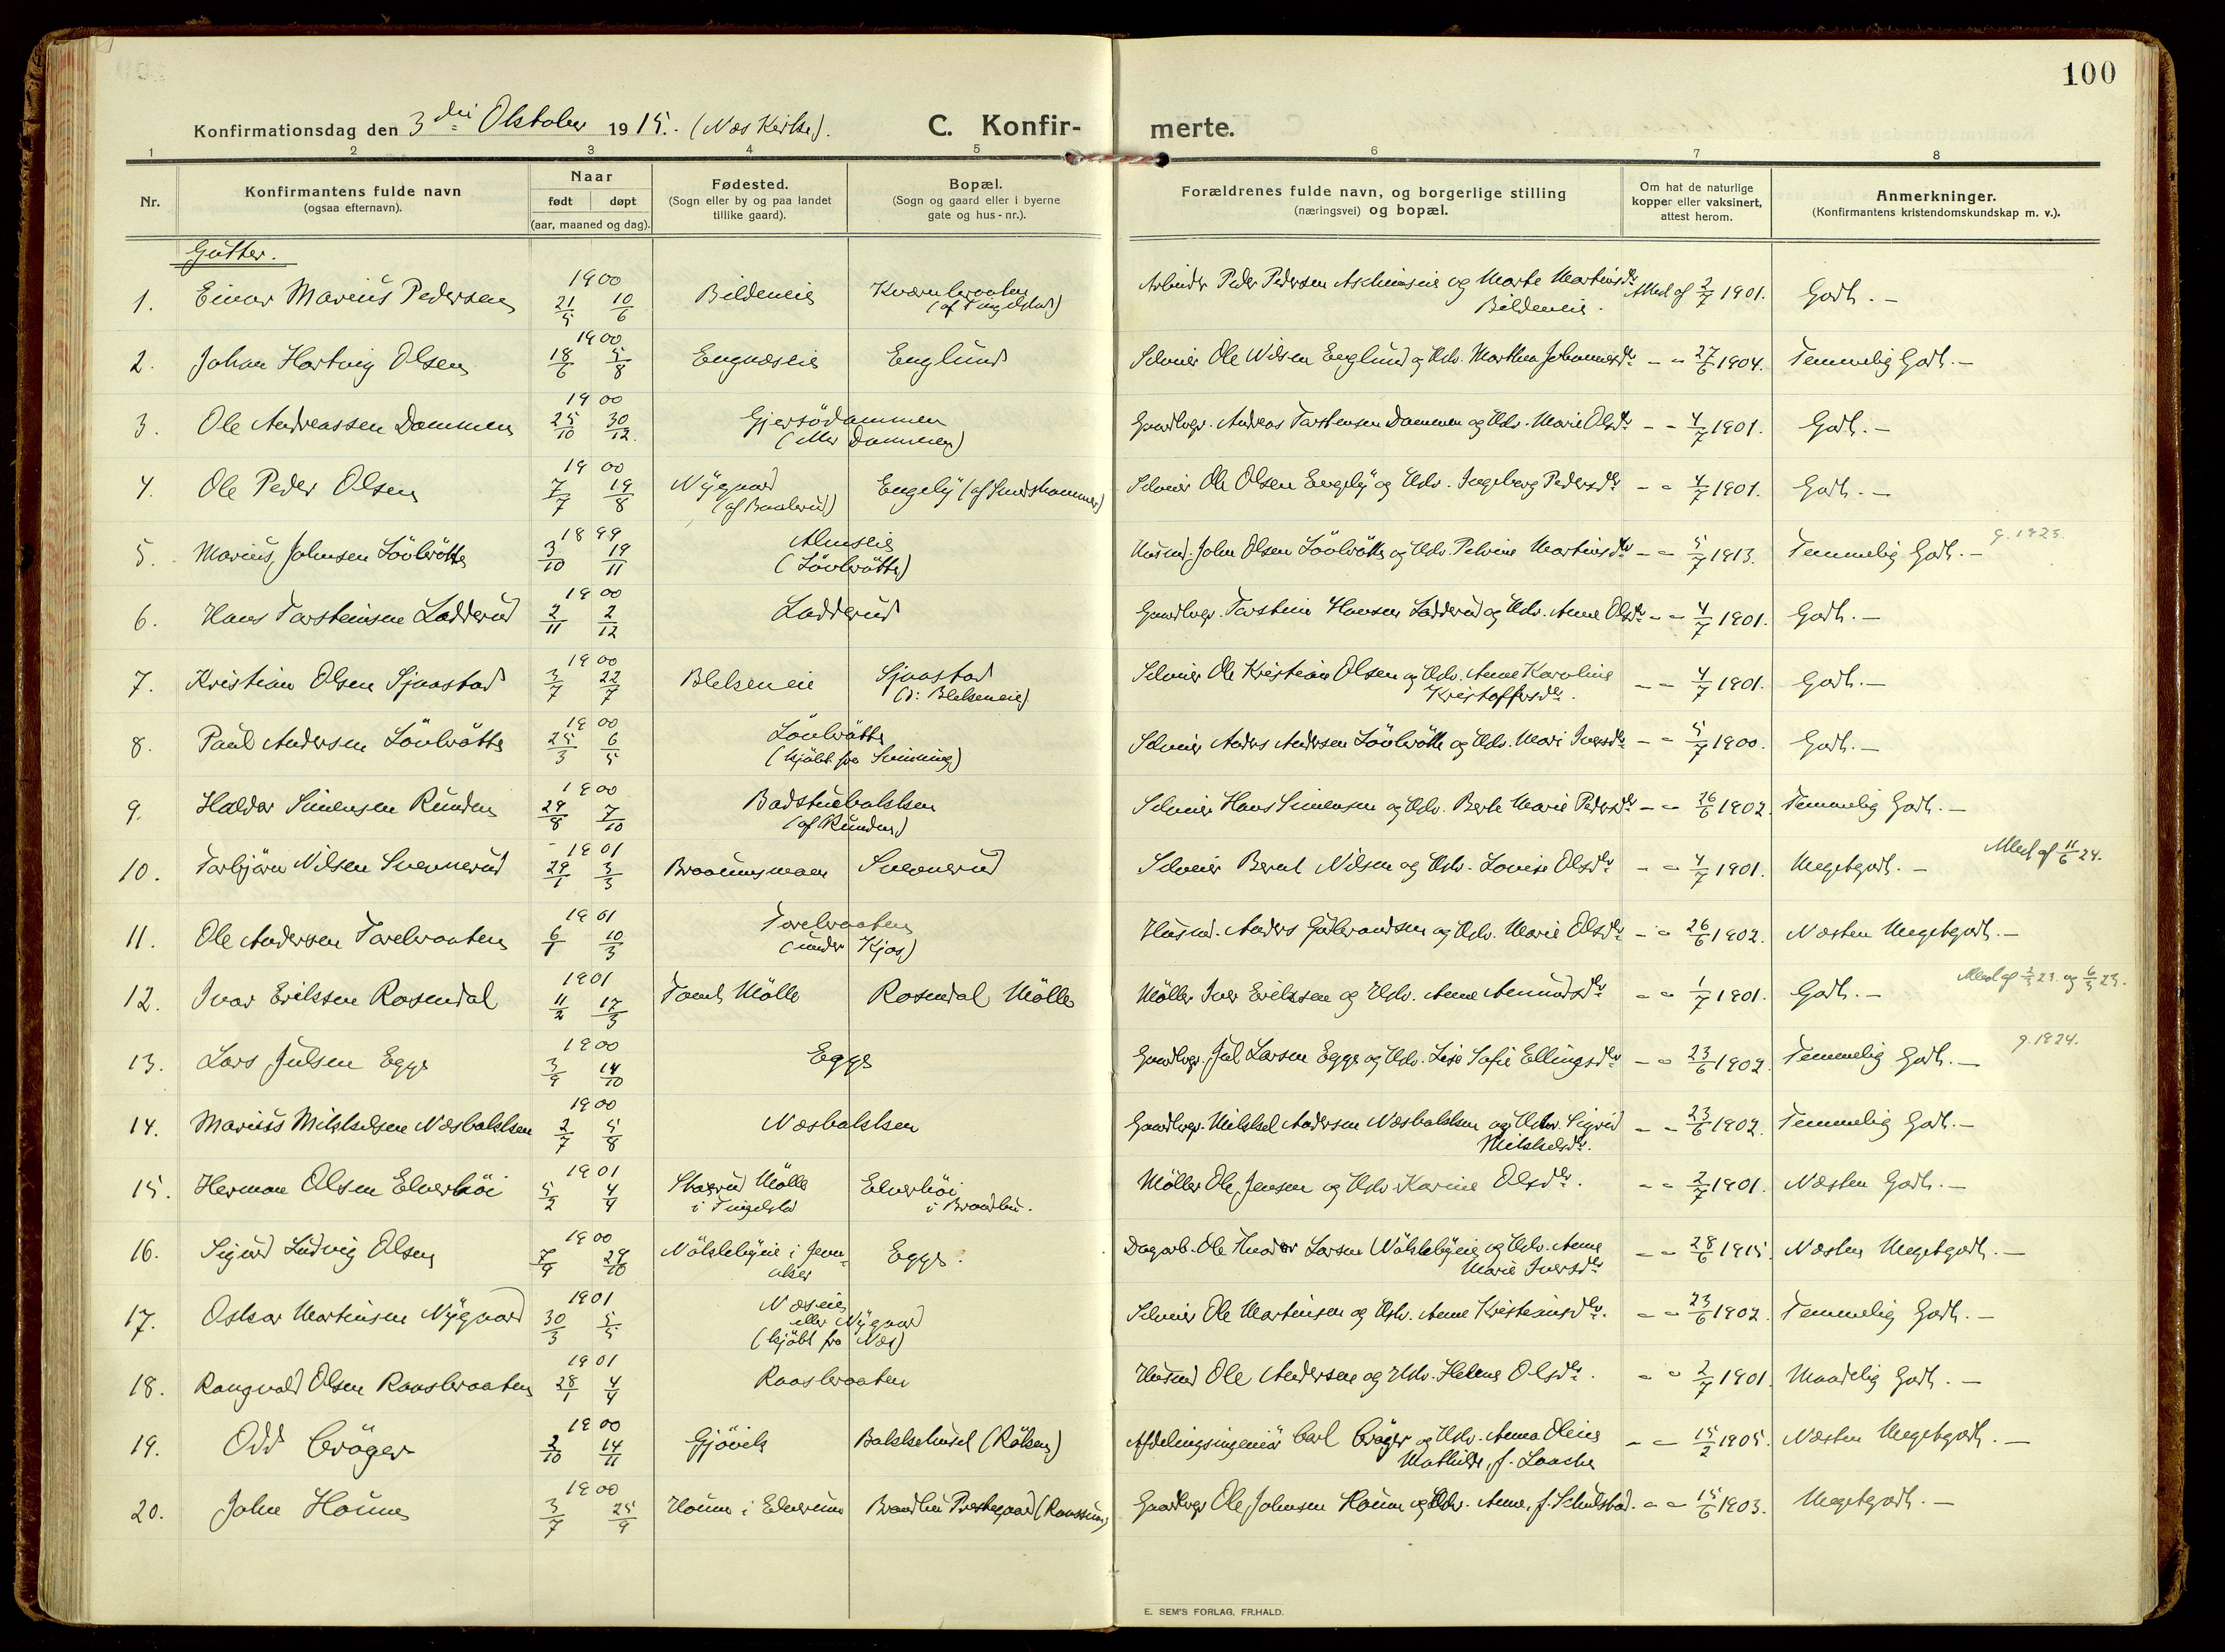 100
Konfirmationsdag den 3die Oktober 1915. (Næs Kirke). C. Konfir- merte.
1 2 3 4 5 6 7 8
Nr. Konfirmantens fulde navn (ogsaa efternavn). Naar født døpt (aar, maaned og dag). Fødested. (Sogn eller by og paa landet tillike gaard). Bopæl. (Sogn og gaard eller i byerne gate og hus-nr.). Forældrenes fulde navn, og borgerlige stilling (næringsvei) og bopæl. Om hat de naturlige kopper eller vaksinert, attest herom. Anmerkninger. (Konfirmantens kristendomskundskap m. v.).
Gutter.
1. Einar Marius Pedersen 1900 21/5 10/6 Bildeneie Kværnbraaten (af Tingelstad) Arbeider Peder Pedersen Aschimseie og Marte Martinsdr Bildeneie. Attest af 2/7 1901. Godt. —
2. Johan Hartvig Olsen 1900 18/6 5/8 Engnæseie Englund Selveier Ole Nilsen Englund og Hstr. Marthea Johannesdr - - 27/6 1904. Temmelig Godt. —
3. Ole Andreassen Dammen 1900 25/10 30/12. Gjersödammen (eller Dammen) Gaardbrgr. Andreas Torstensen Dammen og Hstr. Marie Olsdr - - 4/7 1901. Godt. —
4. Ole Peder Olsen 1900 7/7 19/8 Nÿgaard Engelÿ Selveier Ole Olsen Engelÿ og Hstr. Ingeborg Pedersdr - - 4/7 1901. Godt. —
5. Marius Johnsen Lövbråtte 1899 3/10 19/11 Almseie (Lövbråtte) Husmd. John Olsen Lövbråtte og Hstr. Petrine Martinsdr - - 5/7 1913. Temmelig Godt. — g. 1923.
6. Hans Torsteinsen Ladderud 1900 2/11 2/12 Ladderud Gaardbrgr. Torstein Hansen Ladderud og Hstr. Anne Olsdr - - 4/7 1901. Godt. —
7. Kristian Olsen Sjaastad 1900 3/7 22/7 Blekeneie Sjaastad (ɔ: Blekeneie) Selveier Ole Kristian Olsen og Hstr. Anne Karoline Kristoffersdr. - - 4/7 1901. Godt. —
8. Paul Andersen Lövbråtte 1900 25/3 6/5 Lövbråtte (kjöbt fra ) Selveier Anders Andersen Lövbråtte og Hstr. Mari Iversdr - - 5/7 1900. Godt. —
9. Haldor Simensen Runden 1900 29/8 7/10 Badstuebakken (af Runden) Selveier Hans Simensen og Hstr. Berte Marie Pedersdr - - 26/6 1902. Temmelig Godt. —
10. Torbjörn Nilsen Svennerud 1901 29/1 3/3 Svennerud Selveier Bernt Nilsen og Hstr. Lovise Olsdr - - 4/7 1901. Megetgodt. — Attest af 11/6 24.
11. Ole Andersen Torebraaten 1901 6/1 10/3 Torebraaten (under Kjos) Husmd. Anders Gulbrandsen og Hstr. Marie Olsdr - - 26/6 1902. Næsten Megetgodt. —
12. Ivar Eriksen Rosendal 1901 11/2 17/3 Tomt Mölle Rosendal Mölle Möller Iver Eriksen og Hstr. Anne Amundsdr - - 1/7 1901. Godt. —
13. Lars Julsen Egge 1900 3/9 14/10 Egge Gaardbrgr. Jul Larsen Egge og Hstr. Lise Sofie Ellingsdr - - 23/6 1902. Temmelig Godt. — g. 1924.
14. Marius Mikkelsen Næsbakken 1900 2/7 5/8 Næsbakken Gaardbrgr. Mikkel Andersen Næsbakken og Hstr. Sigrid Mikkelsdr. - - 23/6 1902. Temmelig Godt. —
15. Herman Olsen Elverhöi 1901 5/2 4/4 Mölle i Tingelstad Elverhöi i Brandbu. Möller Ole Jensen og Hstr. Karine Olsdr. - - 2/7 1901. Næsten Godt. —
16. Sigurd Ludvig Olsen 1900 7/9 29/10 Nökkelbÿeie i Jevnaker Egge. Dagarb. Ole Theodor Larsen Nökkelbÿeie og Hstr. Anne Marie Iversdr - - 28/6 1915. Næsten Megetgodt. —
17. Oskar Martinsen Nÿgaard 1901 30/3 5/5 Næseie eller Nÿgaard (kjöbt fra Næs) Selveier Ole Martinsen og Hstr. Anne Kristiansdr. - - 23/6 1902. Temmelig Godt. —
18. Rangvald Olsen Raasbraaten 1901 28/1 4/4 Raasbraaten Husmd Ole Andersen og Hstr. Helene Olsdr. - - 2/7 1901. Maadelig Godt. —
19. Odd Cröger 1900 2/10 14/11 Gjövik Bakkehusel (Röken) Afdelingsingeniör Carl Cröger og Hstr. Anna Oline Mathilde, f. Laache - - 15/2 1905. Næsten Megetgodt. —
20. John Houm 1900 3/7 25/9 Houm i Elverum Brandbu Prestegaard Gaardbrgr Ole Johnsen Houm og Hstr. Anne, f. Schulstad. - - 15/6 1903. Megetgodt. —
E. SEM'S FORLAG, FR.HALD.